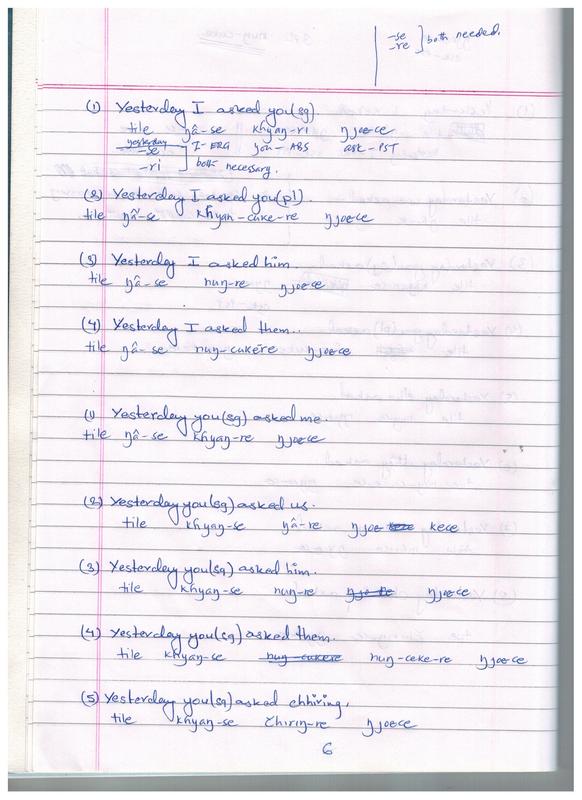 -se
-re ] both needed.
(1) Yesterday I asked you(sg)
tile ŋâ-se khyaŋ-ri ŋjoece
yesterday I-ERG you-ABS ask-PST
-se
-ri ] both necessary.
(2) Yesterday I asked you(pl).
tile ŋâ-se khyaŋ-cuke-re ŋjoece
(3) Yesterday I asked him.
tile ŋâ-se huŋ-re ŋjoece
(4) Yesterday I asked them..
tile ŋâ-se huŋ-cukere ŋjoece
(1) Yesterday you(sg) asked me.
tile ŋâ-se khyaŋ-re ŋjoece
(2) Yesterday you(sg) asked us.
tile khyaŋ-se ŋâ-re ŋjoe kece
(3) Yesterday you(sg) asked him.
tile khyaŋ-se huŋ-re ŋjoece
(4) Yesterday you(sg) asked them.
tile khyaŋ-se huŋ-cukere huŋ-ceke-re ŋjoece
(5) Yesterday you(sg) asked chhiring,
tile khyaŋ-se chiriŋ-re ŋjoece
6